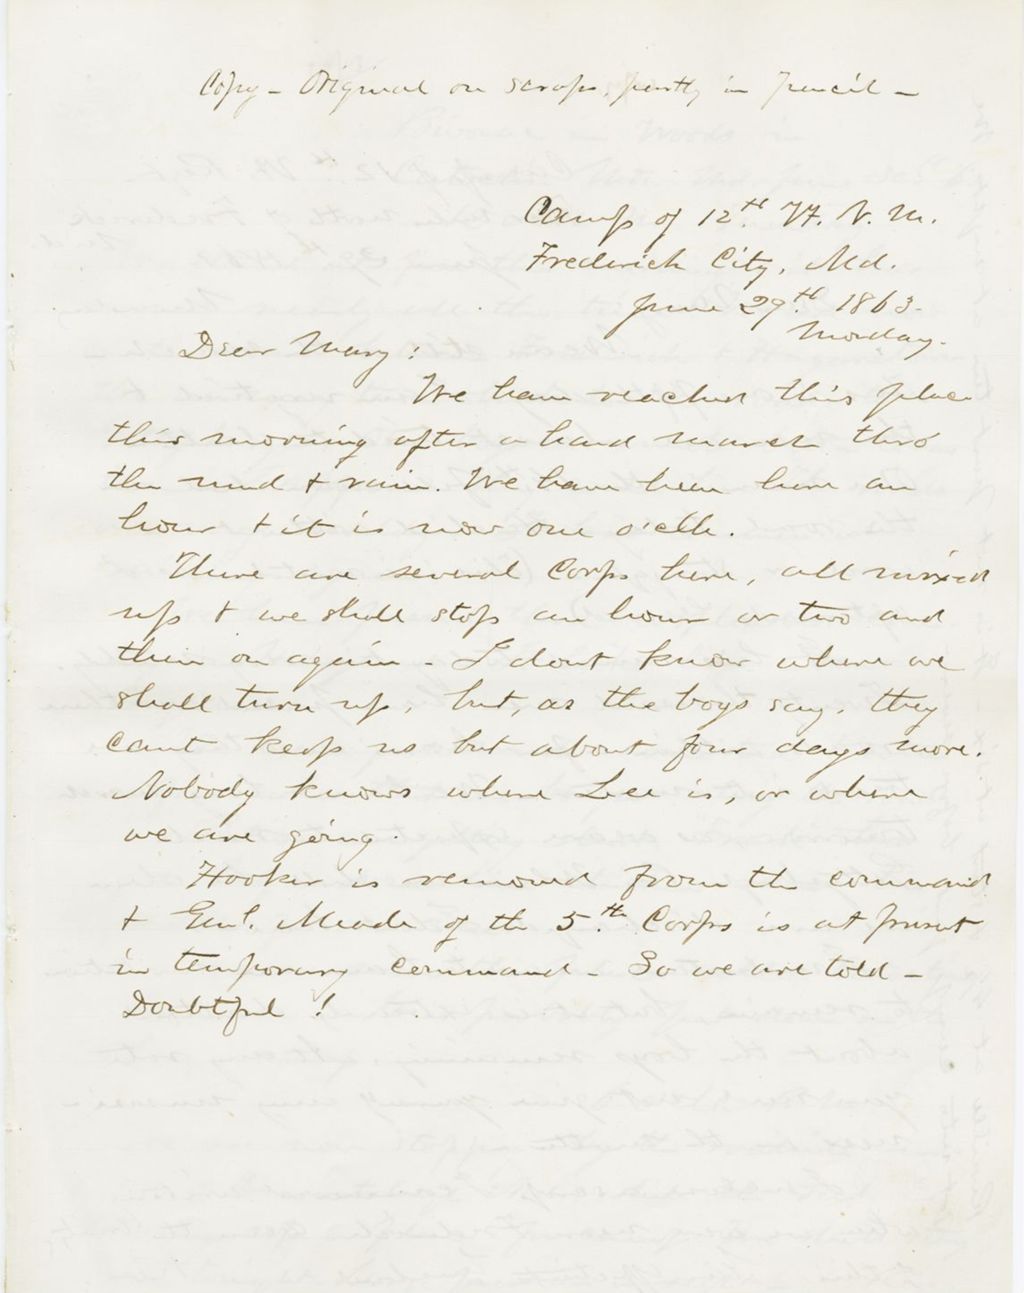 Copy - Original on scraps, partly in pencil -
Camp of 12th Vt. V. M.
Frederick City, Md.
June 29th 1863.
Monday.
Dear Mary:
We have reached this place
this morning after a hard march thro'
the mud & rain. We have been here an
hour & it is now one o'clk.
There are several Corps here, all mixed
up & we shall stop an hour or two and
then on again - I dont know where we
shall turn up, but, as the boys say, they
cant keep us but about four days more.
Nobody knows where Lee is, or where
we are going.
Hooker is removed from the command
& Genl. Meade of the 5th Corps is at present
in temporary command - So we are told -
Doubtful!